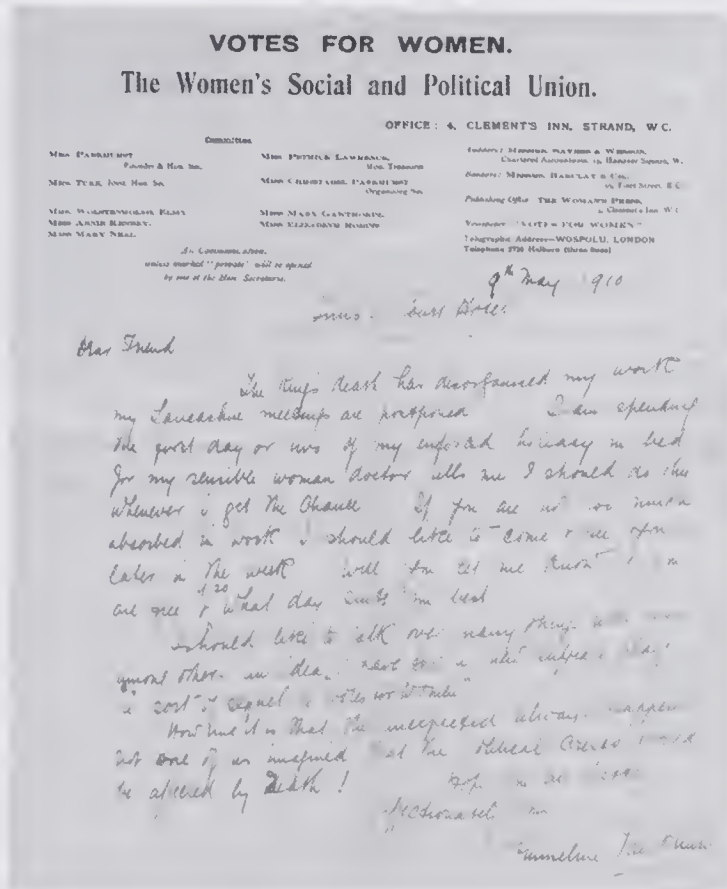 VOTES FOR WOMEN.
The Women's Social and Political Union.
OFFICE: 4, CLEMENT'S INN, STRAND, W C.
Committee
MRS. PANKHURST
Founder & Hon. Sec.
MRS. TUKE, Joint Hon. Sec.
MRS. WOLSTENHOLME ELMY
MISS ANNIE KENNEY.
MISS MARY NEAL.
MRS. PETHICK LAWRENCE,
Hon. Treasurer
MISS CHRISTABEL PANKHURST
Organising Sec.
MISS MARY GAWTHORPE.
MISS ELIZABETH ROBINS
Chartered Accountants, Hanover Square, W.
Bankers: MESSRS. BARCLAY & CO.
Fleet Street, E.C.
Publishing Office THE WOMAN'S PRESS,
4, Clement's Inn W C
Newspaper "VOTES FOR WOMEN"
Telegraphic Address—WOSPOLU, LONDON
Telephone 2724 Holborn (three lines)
All Communications,
unless marked "private" will be opened
by one of the Hon. Secretaries.
9th May 1910
Inns Court Hotel
Dear Friend
The King's death has disorganised my work
my Lancashire meetings are postponed I am spending
the first day or two of my enforced holiday in bed
for my sensible woman doctor tells me I should do this
whenever I get the chance If you are not so much
absorbed in work I should like to come & see you
later in the week Will you let me know if you
are free & if so what day suits you best
I should like to talk over many things
among others an idea I have
a sort of sequel to Votes for Women"
How true it is that the unexpected always happens
Not one of us imagined that the political crisis would
be altered by Death!
affectionately
Emmeline Pankhurst